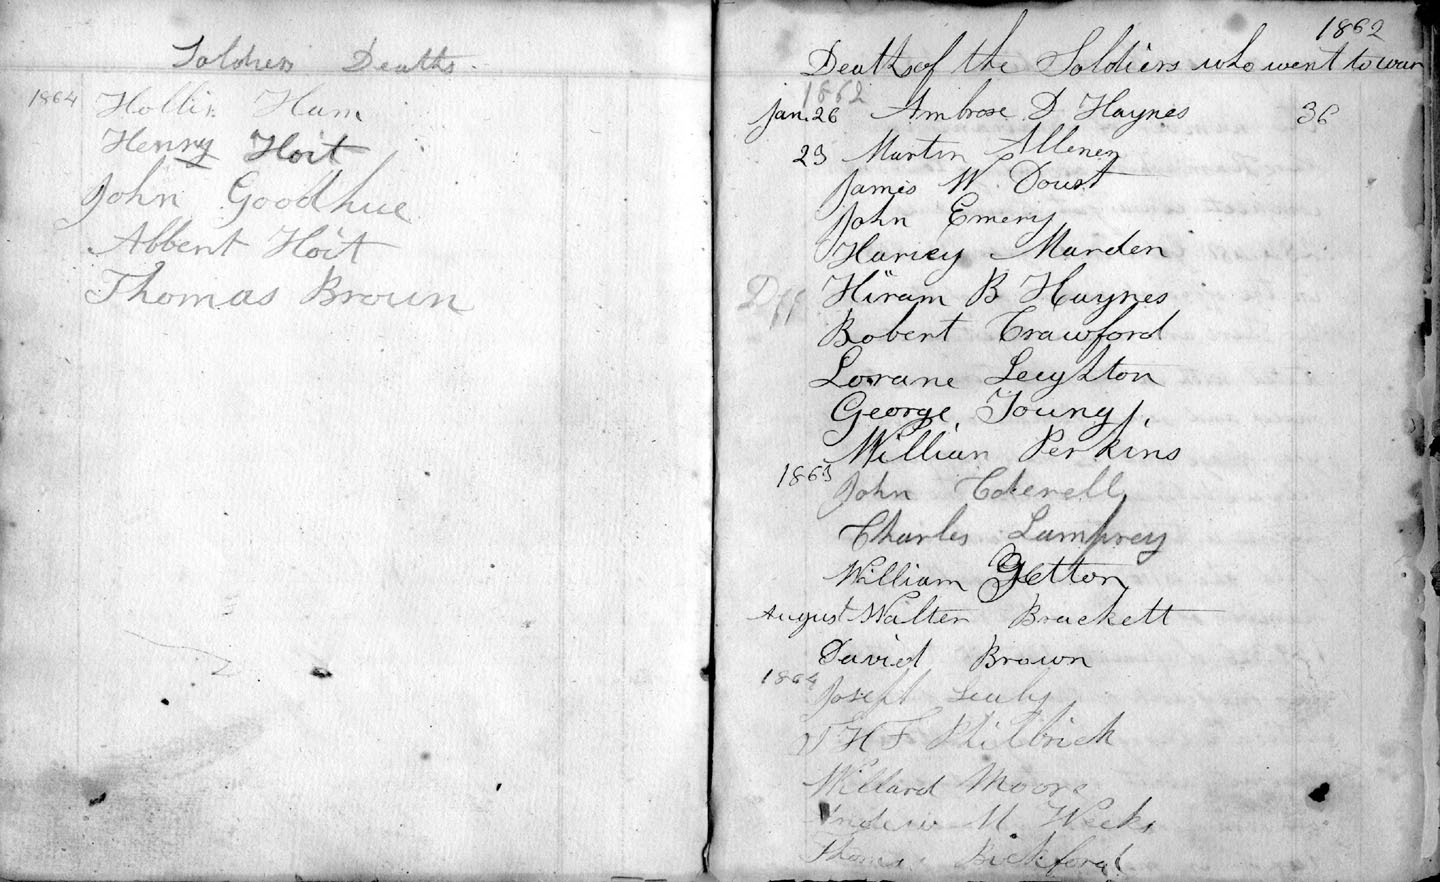 Soldiers Deaths.
1864 Hollis Ham
Henry Hoit
John Goodhue
Abbent Hoit
Thomas Brown
1862
Deaths of the Soldiers who went to war
1862
Jan. 26 Ambrose D Haynes 36
23 Martin Allenen
James W. Doust
John Emery
Harvey Marden
Hiram B Haynes
Robert Crawford
Lorane Leighton
George Young
William Perkins
1863 John
Charles Lamprey
William Yetton
August Walter Brackett
David Brown
1864 Joseph Sealy
J H F Philbrick
Willard Moore
Andrew M. Weeks
Thomas Bickford